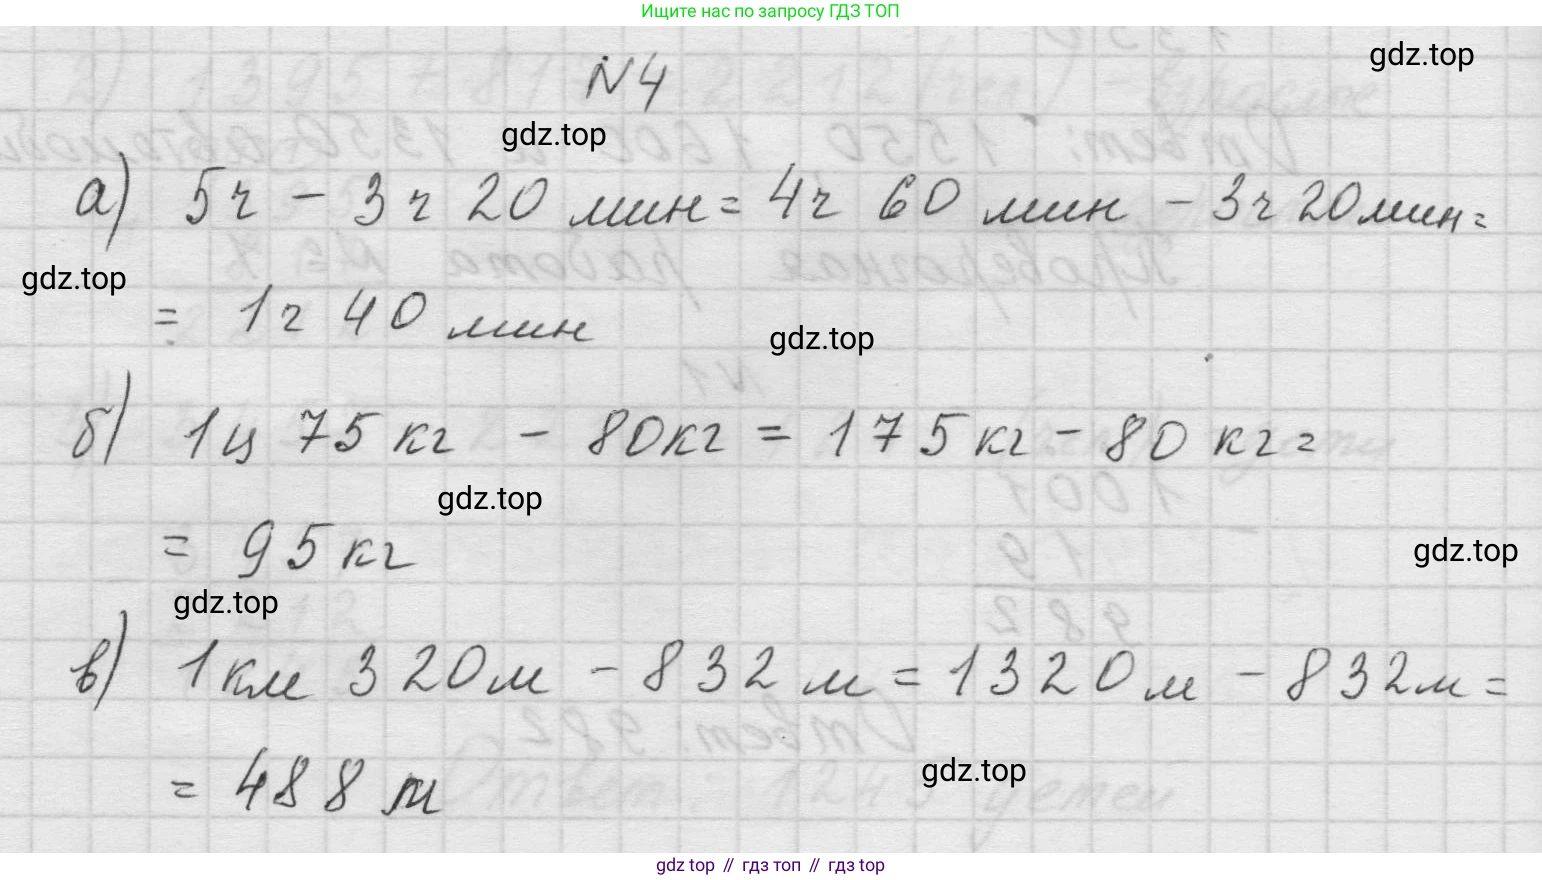 Ищите нас по запросу ГДЗ ТОП
gdz.top
N4
gdz.top
а) 5ч - 3ч 20 мин = 4ч 60 мин - 3ч 20 мин =
gdz.top
= 1ч 40 мин
gdz.top
б) 1ц 75 кг - 80 кг = 175 кг - 80 кг =
gdz.top
= 95 кг
gdz.top
gdz.top
в) 1 км 320 м - 832 м = 1320 м - 832 м =
gdz.top
= 488 м
gdz top // гдз топ // gdz top